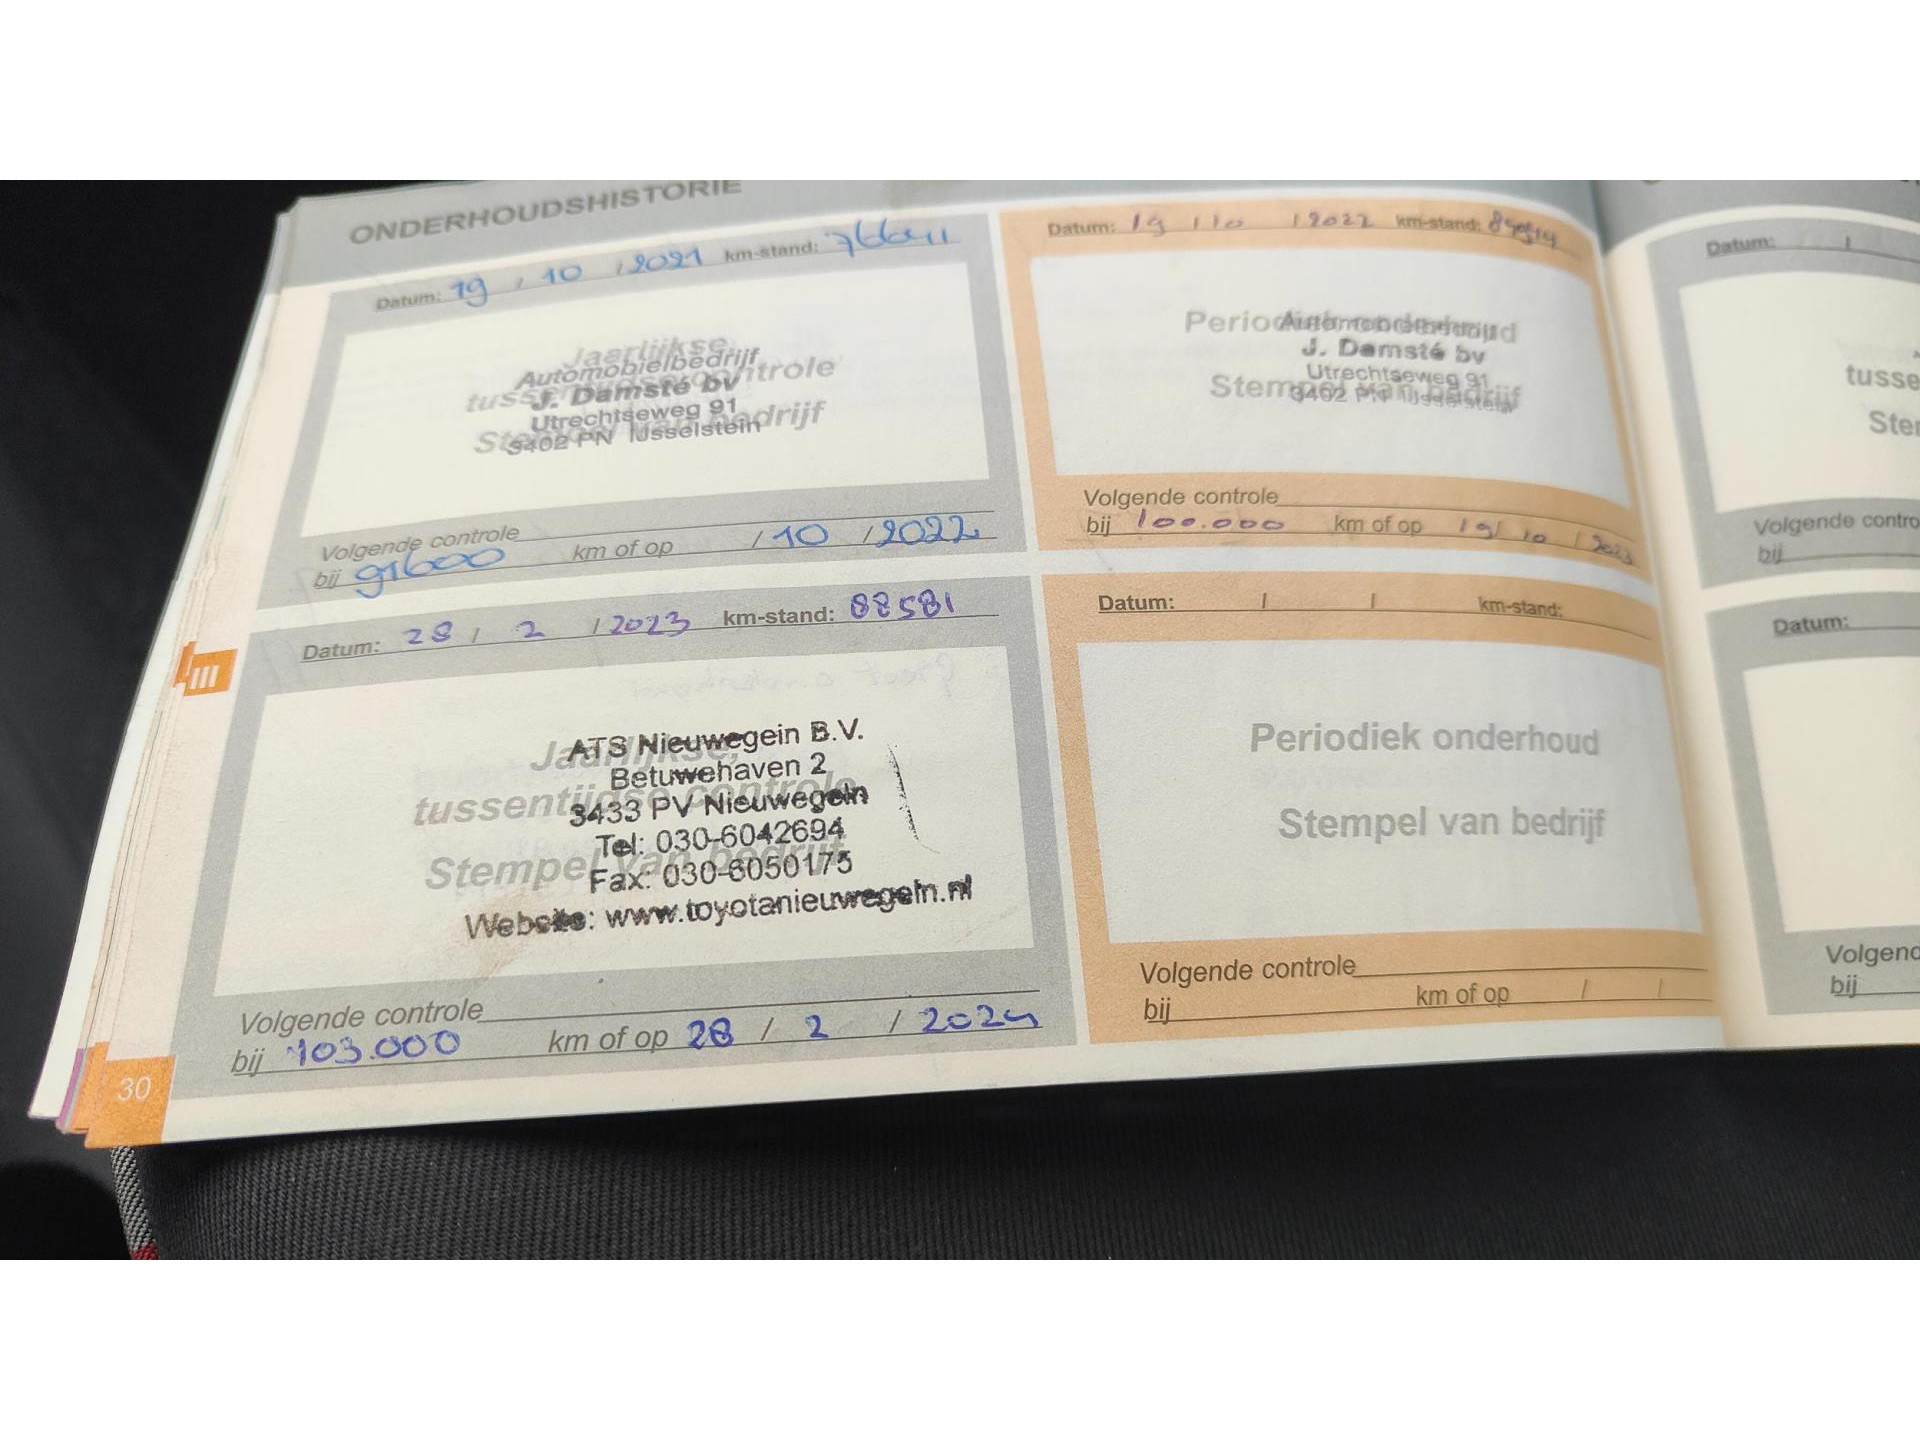 ONDERHOUDSHISTORIE
Datum: 19 / 10 / 2021 km-stand:
Jaarlijkse,
tussentijdse controle
Stempel van bedrijf
Automobielbedrijf
J. Damsté bv
Utrechtseweg 91
3402 PN IJsselstein
Volgende controle
bij 91600 km of op / 10 / 2022
Datum: 19 / 10 / 2022 km-stand:
Periodiek onderhoud
Stempel van bedrijf
Automobielbedrijf
J. Damsté bv
Utrechtseweg 91
3402 PN IJsselstein
Volgende controle
bij 100.000 km of op 19/ 10 / 2023
Datum: 28 / 2 / 2023 km-stand: 88581
Jaarlijkse,
tussentijdse controle
Stempel van bedrijf
ATS Nieuwegein B.V.
Betuwehaven 2
3433 PV Nieuwegein
Tel: 030-6042694
Fax: 030-6050175
Website: www.toyotanieuwegein.nl
Volgende controle
bij 103.000 km of op 28 / 2 / 2024
Datum: / / km-stand:
Periodiek onderhoud
Stempel van bedrijf
Volgende controle
bij km of op / /
III
30
Datum: /
tusse
Ste
Volgende contro
bij
Datum:
Volgend
bij